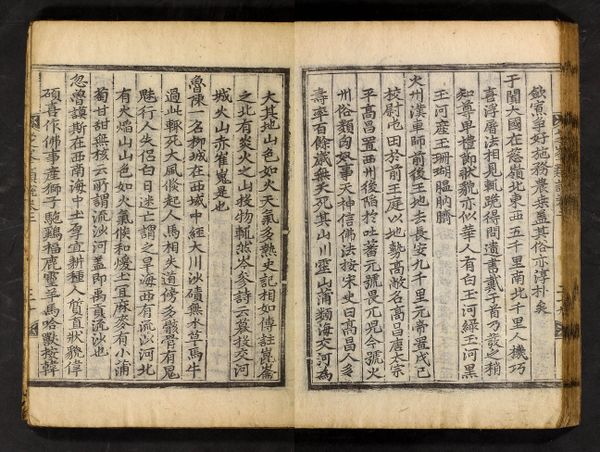 事好施務農桑盖其俗亦淳朴矣
于闐大國在葱嶺北東西五千里南北千里人機巧
喜浮屠法相見輒跪得問遺書戴于首乃發之稍
知尊卑禮節狀貌亦似華人有白玉河綠玉河黑
玉河産玉珊瑚膃肭臍
火州漢車師前後王地去長安九千里元帝置戊己
校尉屯田於前王庭以地勢高敞名高昌唐太宗
平高昌置西州後陷於吐蕃元號畏兀兒今號火
州俗類匈奴事天神信佛法按宋史曰高昌人多
壽率百餘歲無夭死其山川靈山蒲類海交河爲
大其地山色如火天氣多熱史記相如傳註崑崙
之北有炎火之山投物輒然岑參詩云暮投交河
城火山赤崔嵬是也
魯陳一名柳城在西域中經大川沙磧無水草馬牛
過此輒死大風倏起人馬相失道傍多骸骨有鬼
魅行人失侶白日迷亡謂之旱海西有流沙河北
有火焰山山色如火氣候和煖土宜麻麥有小蒲
萄甘甜無核云所謂流沙河盖即禹貢流沙也
忽魯謨斯在西南海中土厚宜耕種人質直狀貌偉
碩喜作佛事産獅子駞鷄福鹿靈羊馬哈獸按韓